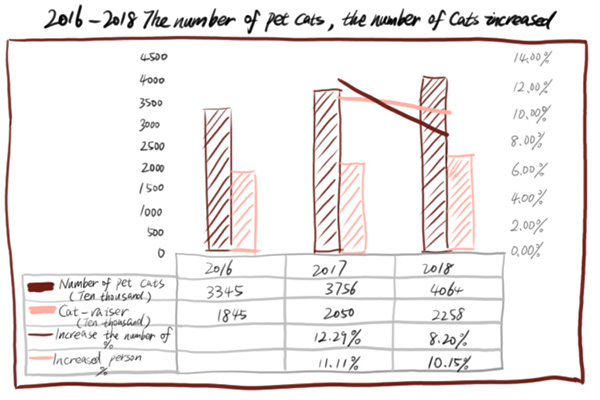 2016-2018 The number of pet cats, the number of Cats increased
4500
4000
3500
3000
2500
2000
1500
1000
500
0
14.00%
12.00%
10.00%
8.00%
6.00%
4.00%
2.00%
0.00%
2016 2017 2018
Number of pet cats
(Ten thousand)
3345 3756 4064
Cat-raiser
(Ten thousand)
1845 2050 2258
Increase the number of
%
12.29% 8.20%
Increased person
%
11.11% 10.15%